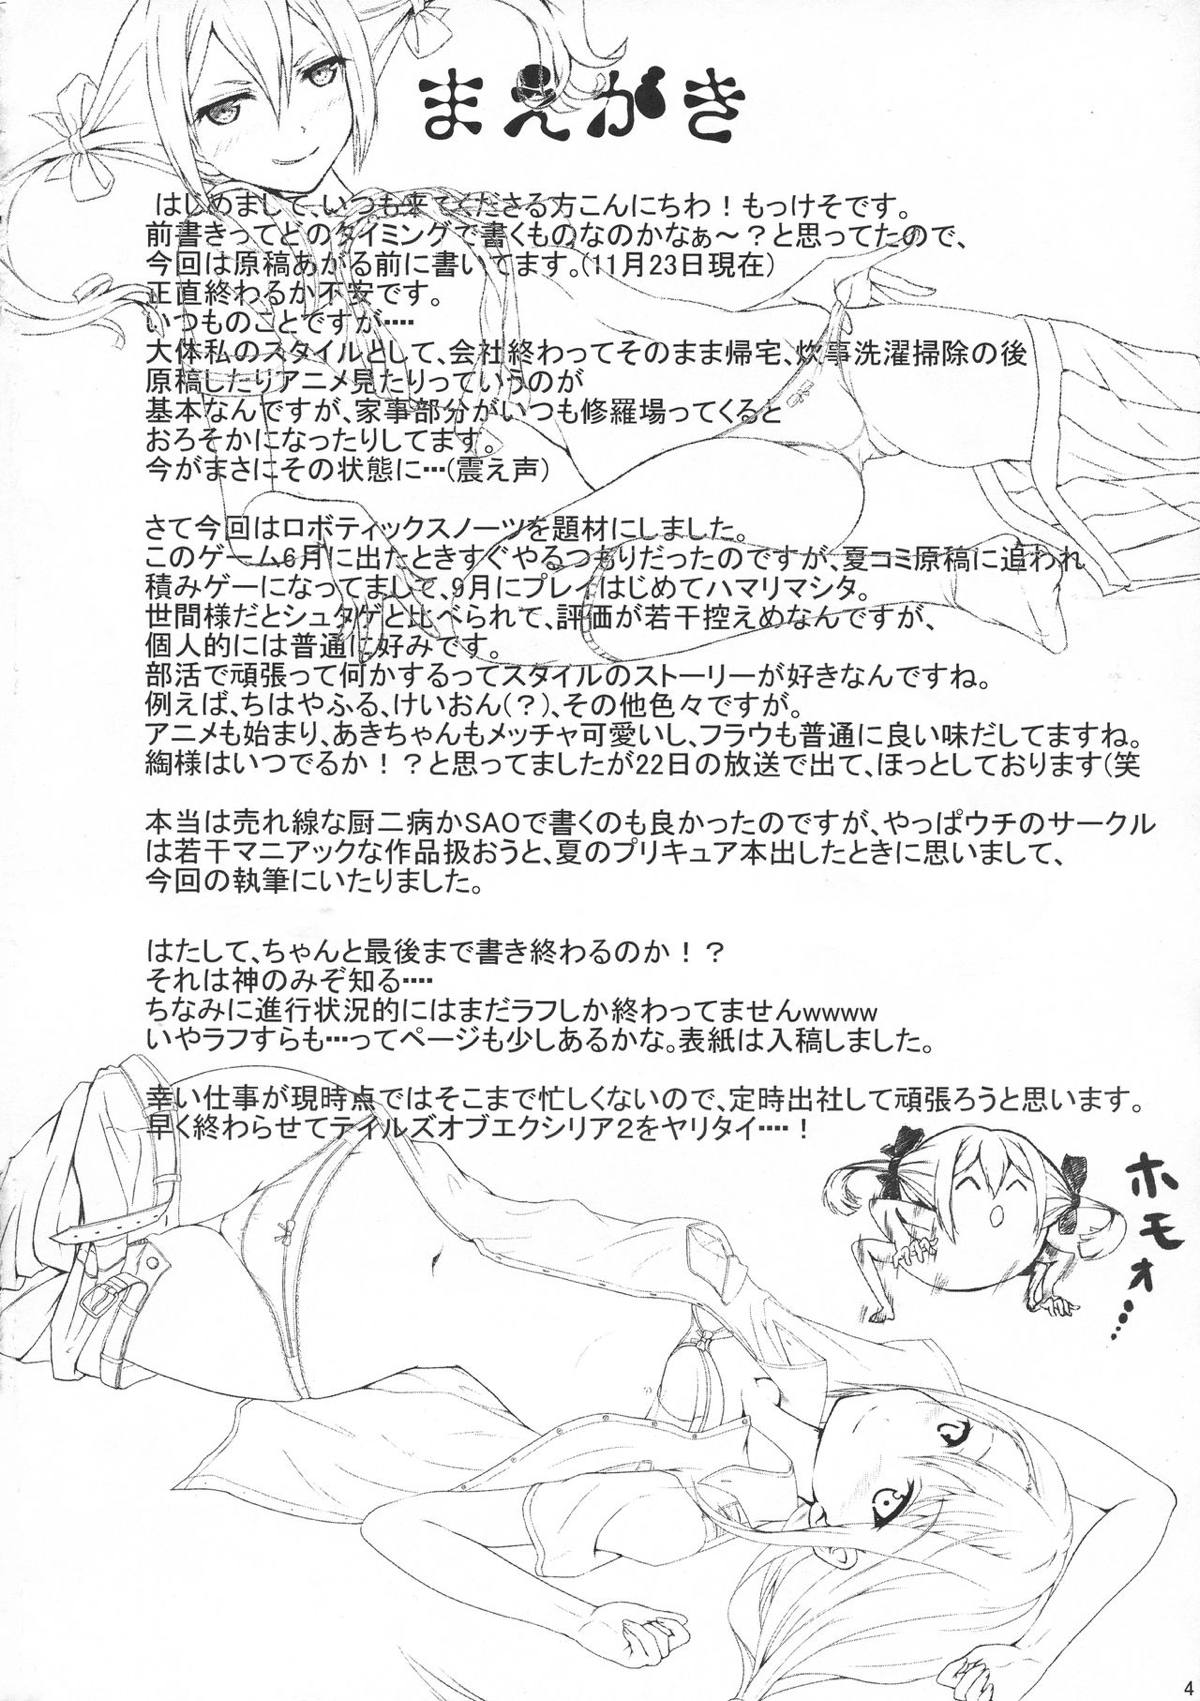 まえがき
はじめまして、いつも来てくださる方こんにちわ！もっけそです。
前書きってどのタイミングで書くものなのかなぁ～？と思ってたので、
今回は原稿あがる前に書いてます。(11月23日現在)
正直終わるか不安です。
いつものことですが････
大体私のスタイルとして、会社終わってそのまま帰宅、炊事洗濯掃除の後
原稿したりアニメ見たりっていうのが
基本なんですが、家事部分がいつも修羅場ってくると
おろそかになったりしてます。
今がまさにその状態に･･･(震え声)
さて今回はロボティックスノーツを題材にしました。
このゲーム6月に出たときすぐやるつもりだったのですが、夏コミ原稿に追われ
積みゲーになってまして、9月にプレイはじめてハマリマシタ。
世間様だとシュタゲと比べられて、評価が若干控えめなんですが、
個人的には普通に好みです。
部活で頑張って何かするってスタイルのストーリーが好きなんですね。
例えば、ちはやふる、けいおん(？)、その他色々ですが。
アニメも始まり、あきちゃんもメッチャ可愛いし、フラウも普通に良い味だしてますね。
綯様はいつでるか！？と思ってましたが22日の放送で出て、ほっとしております(笑
本当は売れ線な厨二病かSAOで書くのも良かったのですが、やっぱウチのサークル
は若干マニアックな作品扱おうと、夏のプリキュア本出したときに思いまして、
今回の執筆にいたりました。
はたして、ちゃんと最後まで書き終わるのか！？
それは神のみぞ知る････
ちなみに進行状況的にはまだラフしか終わってませんwwww
いやラフすらも･･･ってページも少しあるかな。表紙は入稿しました。
幸い仕事が現時点ではそこまで忙しくないので、定時出社して頑張ろうと思います。
早く終わらせてテイルズオブエクシリア2をヤリタイ････！
ホモォ…
4